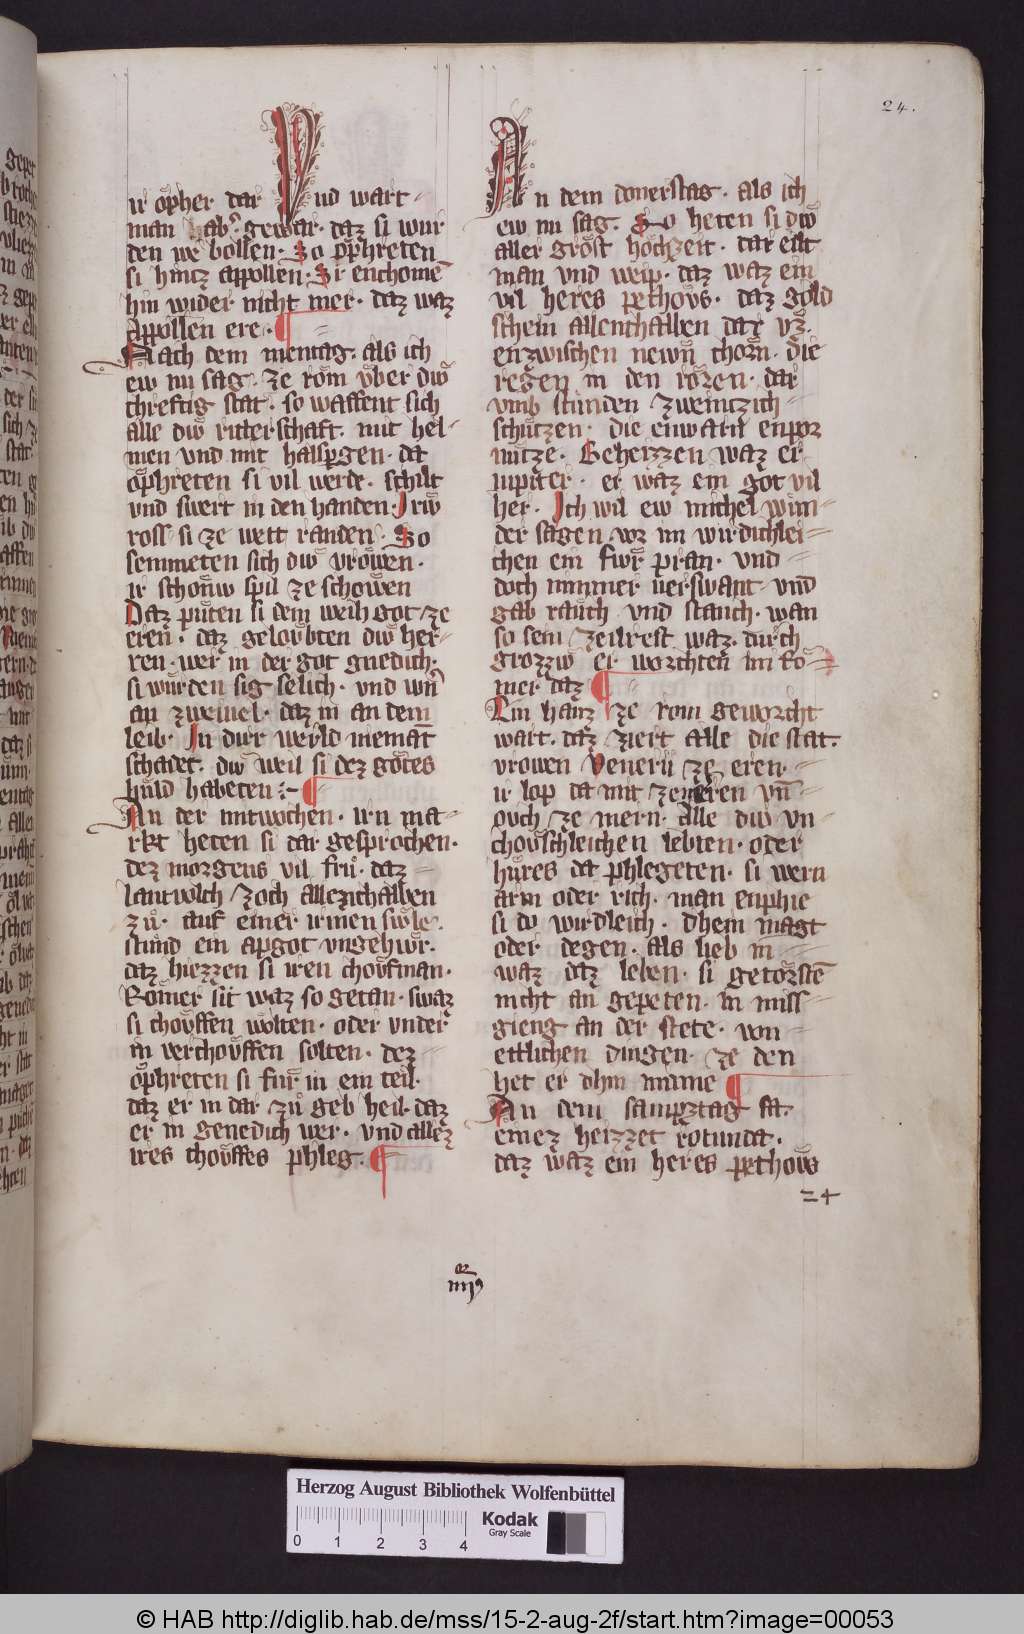 24.
ir öpher dar Vnd wart
man gewar. daz si wur
den we bollen. So öphreten
si hincz appollen. Si enchomē
hin wider nicht mer. daz waz
Appollen ere.
Nach dem mentag. als ich
ew nu sag. ze rom vber diw
chreftig stat. so waffent sich
alle diw ritterschaft. mit hel-
men vnd mit halspgen. da
öphreten si vil werde. schilt
vnd swert in den handen. Irw
ross si ze wett randen. So
semmeten sich diw vrowen.
ir schonw spil ze schowen
Daz puten si dem weih got ze
eren. daz geloubten diw her-
ren. wer in der got gnedich.
si wurden sig selich. vnd wn̄
an zweiuel. daz in an dem
leib. In dirr werld niemāt
schadet. diw weil si dez gotes
huld habeten
An der mitwochen. irn ma-
rkt heten si dar gesprochen.
dez morgens vil fru. daz
lantvolch zoch allezichalben
zu. auf einer irmen swle.
stund ein apgot vngehwr.
daz hiezzen si iren choufman.
Romer sit waz so getan. swaz
si chouffen wolten. oder vnder
in verchouffen solten. dez
öphreten si fur in ein teil.
daz er in dar zu geb heil. daz
er in genedich wer. vnd allez
ires chouffes phleg.
An dem donerstag. als ich
ew nu sag. So heten si diw
aller grost hochzeit. dar eilt
man vnd weip. daz waz ein
vil heres pethous. daz gold
schein allenthalben dar vz.
enzwischen newn chorn. die
regen in den roren. dar
vmb stunden zweinczich
schutzen. die einwarn enpor
nutze. Geheizzen waz er
iupiter. er waz ein got vil
her. Ich wil ew michel wun-
der sagen vor im wirdichlei-
chen ein fwr pran. vnd
doch nimmer verswant vnd
gab rauch vnd stauch. wan
so sein zeilrest waz. durch
grozzw er worchten im ro-
mer daz
Ein haus ze rom geworcht
wart. daz ziert alle die stat.
vrowen Venerii ze eren.
ir lop da mit ze meren vn̄
ouch ze mern. alle diw vn
chouschleichen lebten. oder
hures da phlegeten. si wern
arm oder rich. man enphie
si do wirdleich. Dhein magt
oder degen. als lieb in
waz daz leben. si getorstē
nicht an gepeten. In miss
gieng an der stete. von
ettlichen dingen. ze den
het er dhin minne
An dem sampztag sa.
einez heizzet rotunda.
daz waz ein heres pethous
24
iiij9
Herzog August Bibliothek Wolfenbüttel
0 1 2 3 4
Kodak
Gray Scale
© HAB http://diglib.hab.de/mss/15-2-aug-2f/start.htm?image=00053